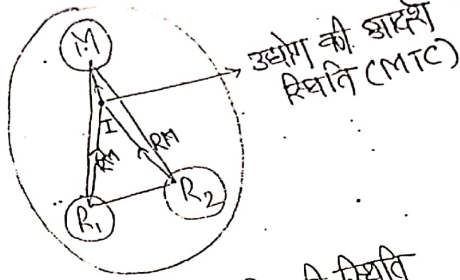 M
उद्योग की आदर्श
स्थिति (MTC)
I
RM
RM
R1
R2
स्थिति